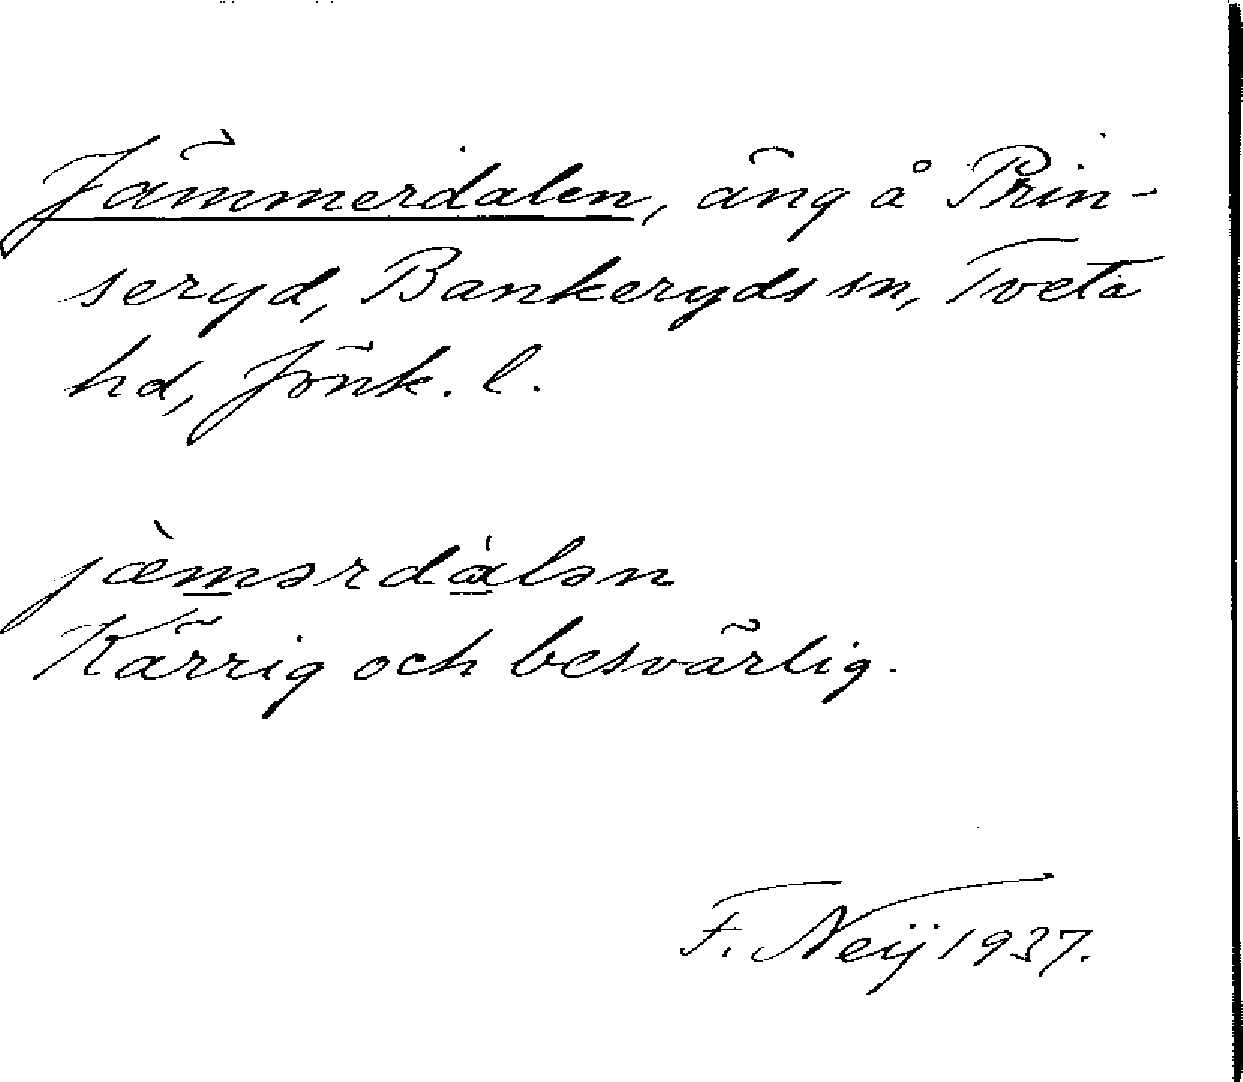 Jämmerdalen, äng å Prin-
seryd, Bankeryds sn, Tveta
hd, Jönk. l.
jæ̀mərdàlən
Kärrig och besvärlig.
F. Neij 1937.